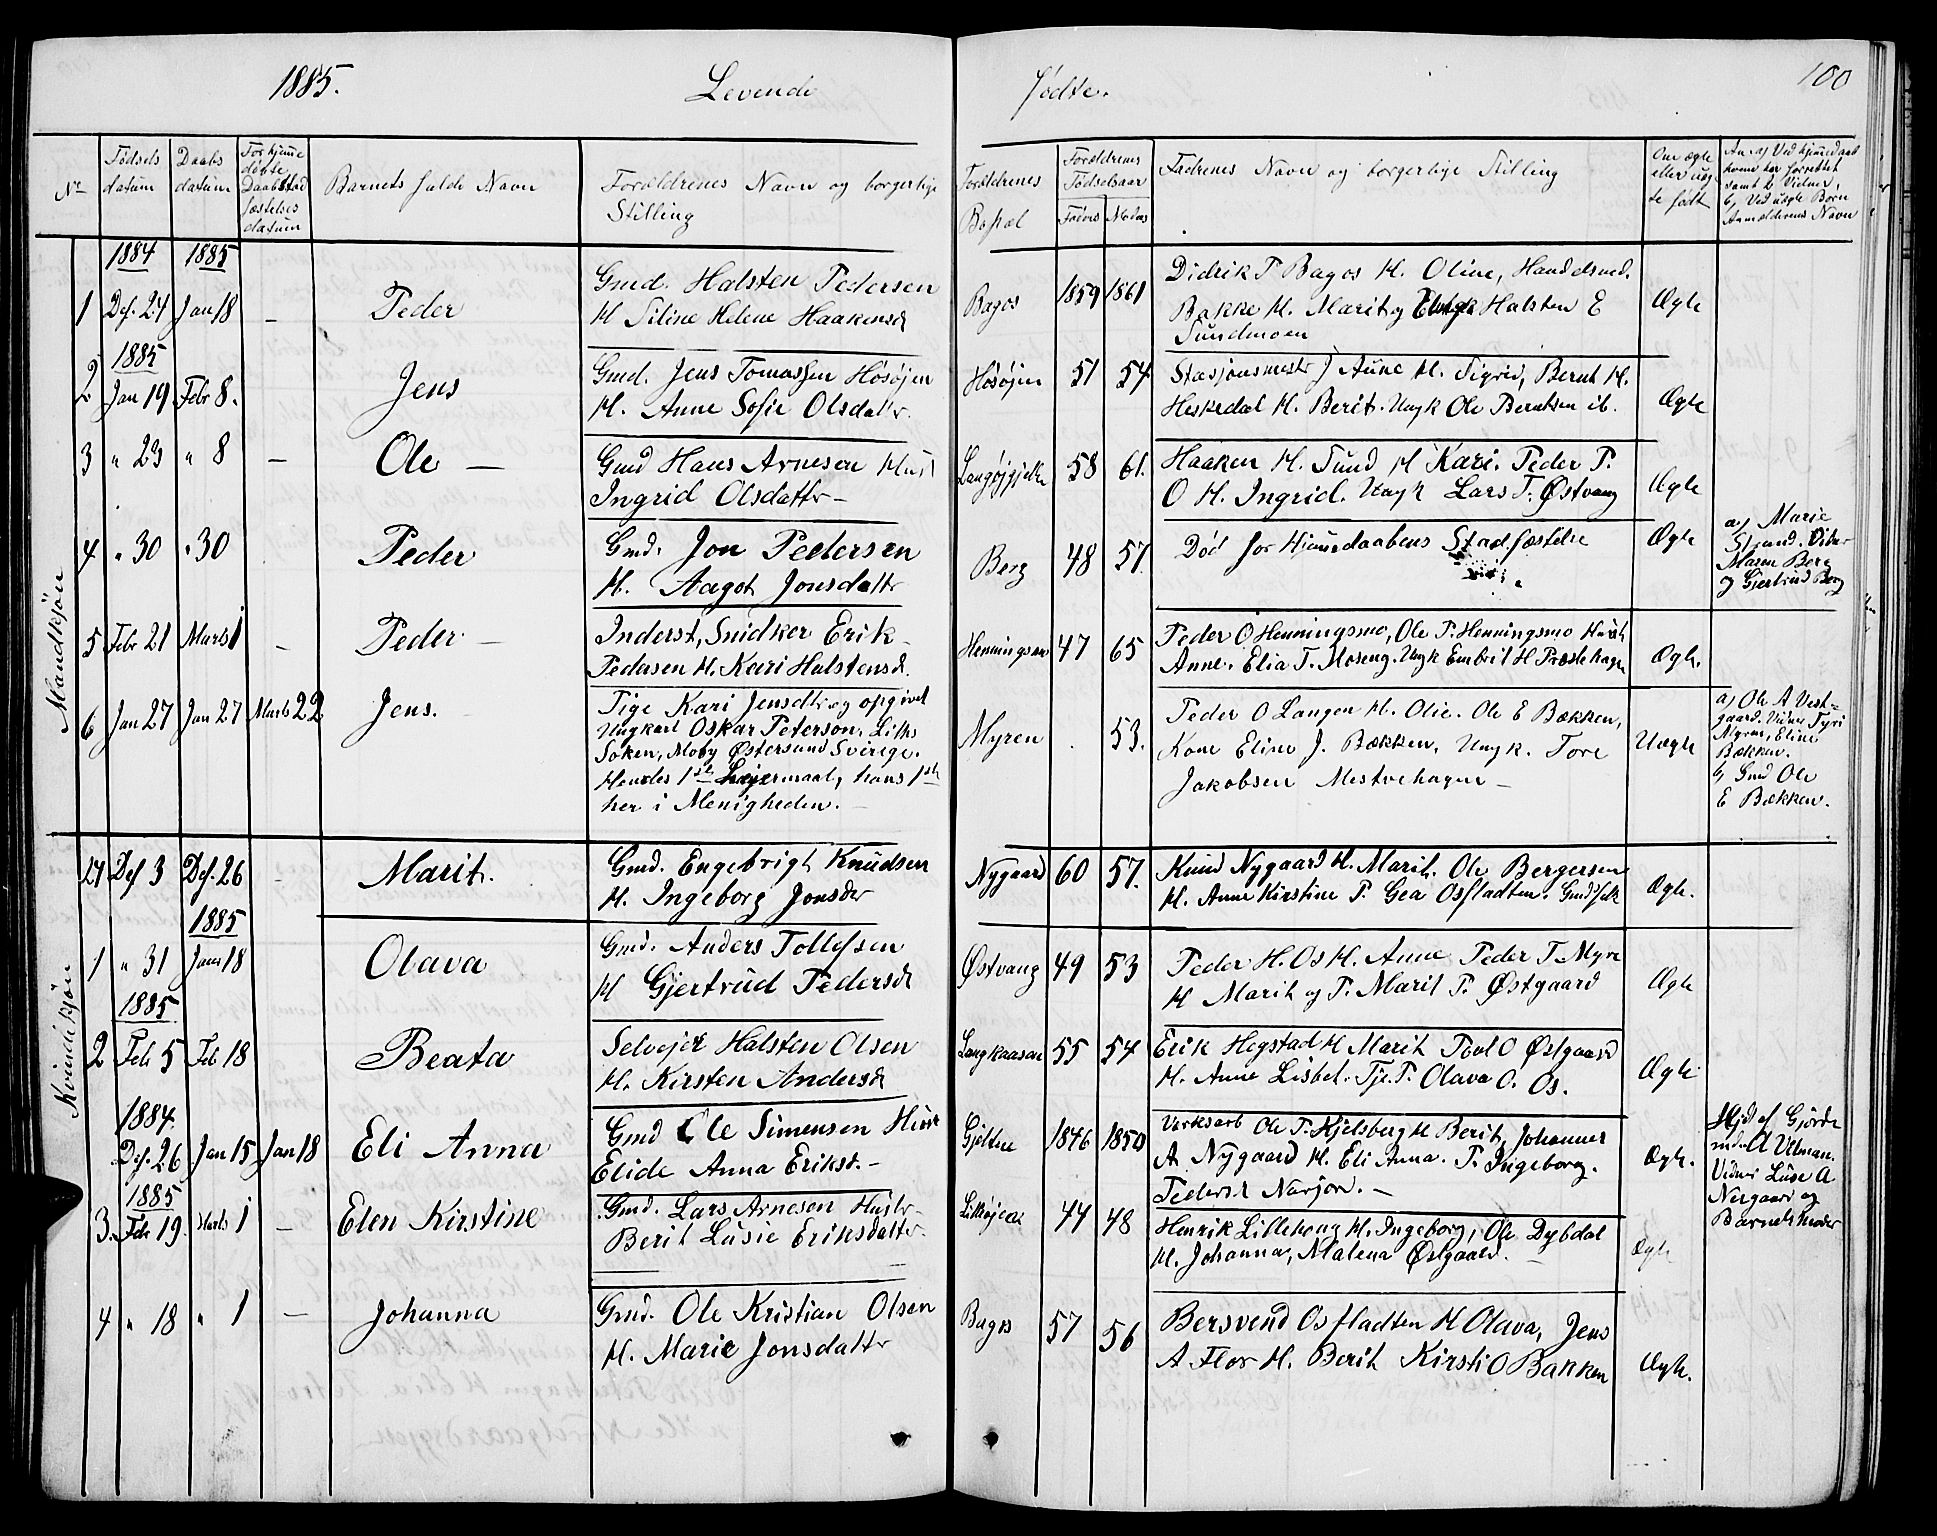 1885. Levende Fødte. 100
No
Fødsels datum
Daabs datum
For hjemme døbte Daabstad fæstelses datum
Barnets fulde Navn
Forældrenes Navn og borgerlige Stilling
Forældrenes Bopæl
Forældrenes Fødselsaar
Fadrs Modrs
Fadrenes Navn og borgerlige Stilling
Om ægte eller uægte født
Mandkjøn
1884 1885
1 Des. 24 Jan 18 - Peder
Gmd. Halsten Pedersen
H Siline Helene Haakensd
Bagos 1859 1861
Didrik P Bagos H. Oline, Handelsmd.
Bakke H. Marit og Ungk Halsten E
Sundmoen
Ægte
1885
2 Jan 19. Febr 8. Jens
Gmd. Jens Tomassen Høsøjen
H. Anne Sofie Olsdattr.
Høsøjen 51 54
Stasjonsmestr J Aune H. Sigrid, Bernt H.
Heskedal H. Berit. Ungk Ole Berntsen ib.
Ægte
3 " 23 " 8 - Ole -
Gmd Hans Arnesen Hust
Ingrid Olsdattr -
Langøjgjelte 58 61.
Haaken H. Sund H Kari. Peder P.
O H. Ingrid. Ungk Lars T. Østvang
Ægte
4 " 30 " 30 Peder
Gmd. Jon Pedersen
H. Aagot Jonsdattr
Berg 48 57
Død for Hjemmedaabens Stadfæstelse
Ægte
a) Marie
Strand. Vidnr
Maren Berg
og Gjertrud Berg
5 Febr 21 Marts 1 - Peder -
Inderst, Snidker Erik
Pedersen H. Kari Halstensd.
Henningsmo 47 65
Peder O Henningsmo, Ole P. Henningsmo Hustr
Anne. Elia T. Moseng. Ungk Embrit H Prestehagen
Ægte.
6 Jan 27 Jan 27 Marts 22 Jens.
Pige Kari Jensdtr og opgivet
Ungkarl Oskar Peterson. Liths
Soken, Moby Østersund Sverige.
Hendes 1ste Lejermaal, hans 1ste
her i Menigheden. -
Myren . 53.
Peder O Langen H. Olie. Ole E Bækken,
Kone Eline J. Bækken, Ungk. Tore
Jakobsen Mestvehagen -
Uægte
a) Ole A Vest-
gaard. Vidnr Tyri
Myren, Eline
Bækken.
b) Gmd Ole
E Bækken.
Kvindekjøn
17 Des 3 Des. 26 - Marit.
Gmd. Engebrigt Knudsen
H. Ingeborg Jonsdtr
Nygaard 60 57.
Knud Nygaard H. Marit. Ole Bergersen
H. Anne Kirstine P. Gea Osfladten. Gmdsfolk
Ægte.
1885
1 " 31 Janr 18 Olava
Gmd. Anders Tollefsen
H Gjertrud Pedersd
Østvang 49 53
Peder H. Os H. Anne Peder T. Myre
H Marit og P. Marit P. Østgaard
Ægte
1885
2 Feb 5 Feb 18 Beata
Selvejer Halsten Olsen
H. Kirsten Andersd
Langkaasen 55 54
Erik Hogstad H Marit Povl O Østgaard
H. Anne Lisbet. Tje. P. Olava O. Os.
Ægte
1884.
Des. 26 Jan 15 Jan 18 Eli Anna
Gmd Ole Simensen Hust
Elide Anna Eriksd. -
Gjelten 1846 1850
Verksarb Ole P. Hjelsberg H Berit, Johannes
A Nygaard H. Eli Anna. P. Ingeborg.
Pedersd Narjor. -
Ægte.
Hjd af Gjorde
mdr A Utman.
Vidnr Luse A
Nergaard og
Barnets Moder
1885
3. Feb 19. Marts 1 - Elen Kirstine
Gmd. Lars Arnesen Hustr.
Berit Lusie Eriksdattr.
Lilleøjen 44 48
Henrik Lillehoug H. Ingeborg, Ole Dybdal
H. Johanna, Malena Østgaard. -
Ægte
4 " 18 " 1 - Johanna
Gmd. Ole Kristian Olsen
H. Marie Jonsdattr
Bagos 57 56
Bersvend Osfladten H Olava, Jens
A Flor H. Berit Kirsti O Bakken
Ægte.